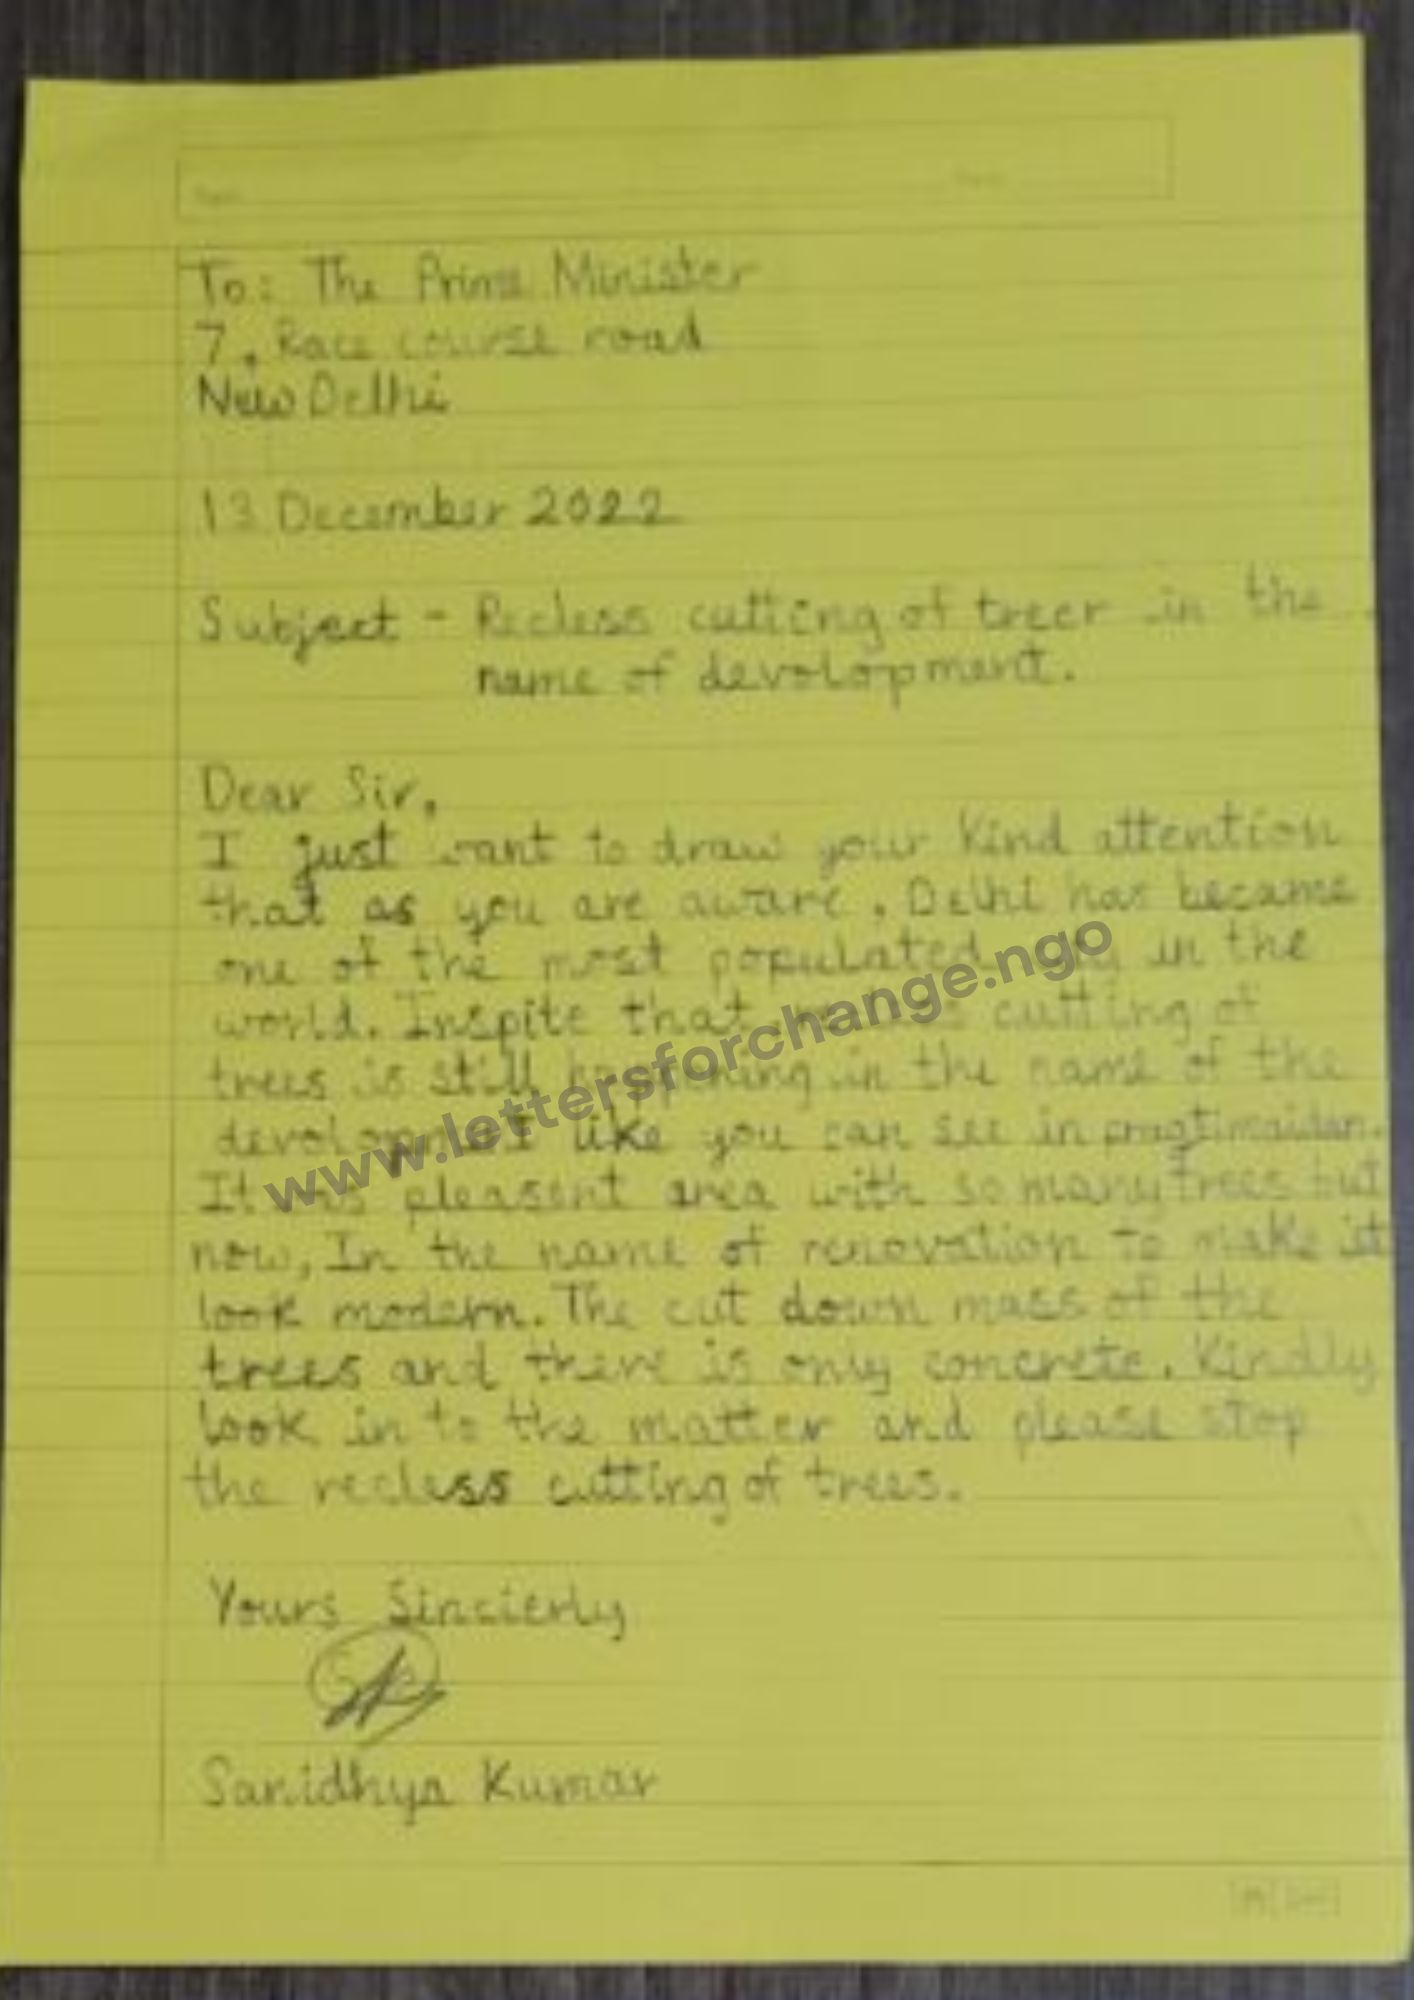 To: The Prime Minister
7, Race course road
New Delhi
13 December 2022
Subject - Recless cutting of treer in the
name of devolopment.
Dear Sir,
I just want to draw your kind attention
that as you are aware, Delhi has became
one of the most populated in the
world. Inspite that cutting of
trees is still happening in the name of the
devolopment like you can see in pragtimaidan.
It was pleasent area with so many trees but
now, In the name of renovation to make it
look modern. The cut down mass of the
trees and there is only concrete. Kindly
look in to the matter and please stop
the recless cutting of trees.
www.lettersforchange.ngo
Yours Sincierly
Sanidhya Kumar